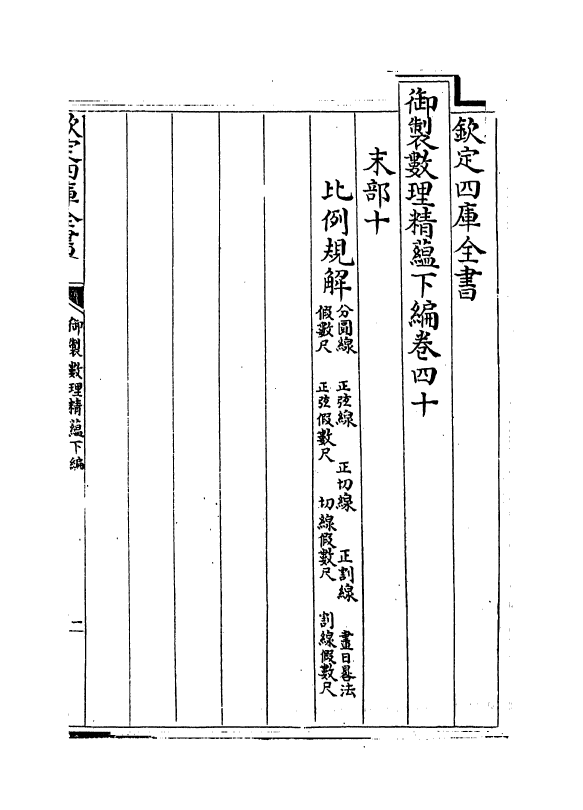 欽定四庫全書
御製數理精藴下編卷四十
末部十
比例規解
分圓線 正弦線 正切線 正割線 畫日晷法
假數尺 正弦假數尺 切線假數尺 割線假數尺
欽定四庫全書
御製數理精藴下編
二